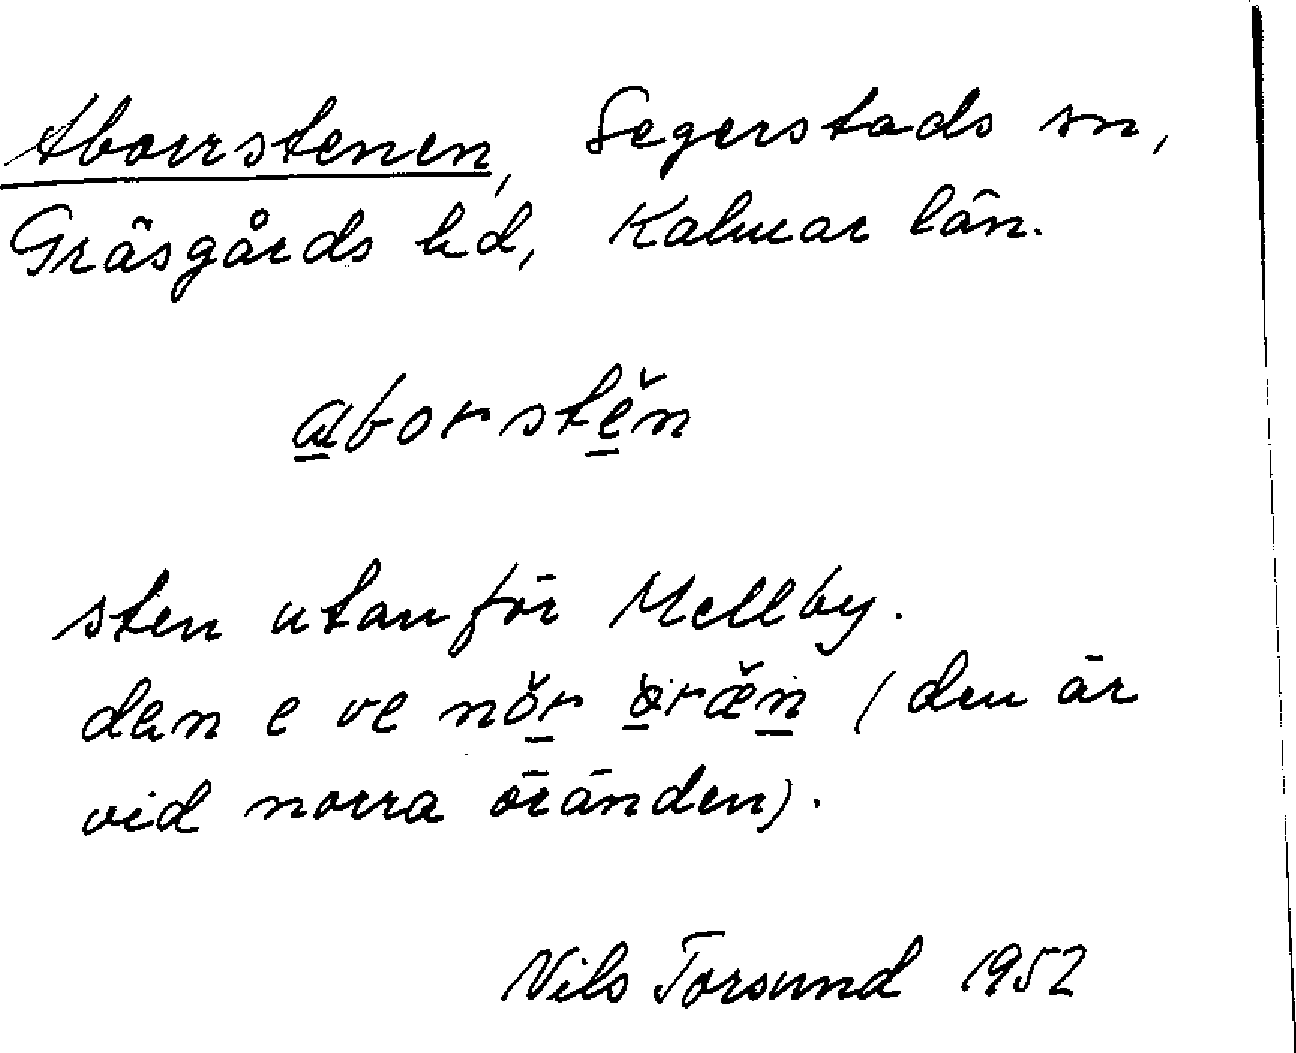 Aborrstenen, Segerstads sn,
Gräsgårds hd, Kalmar län.
a̲borstě̲n
sten utanför Mellby.
dan e ve nǒr̲ ö̲ræ̌n̲ (den är
vid norra öränden).
Nils Torsund 1952